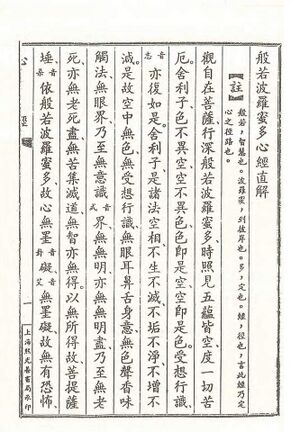 般若波羅蜜多心經直解
【註】般若，智慧也。波羅蜜，到彼岸也。多，定也。經，徑也，言此經乃定
心之徑路也。
觀自在菩薩、行深般若波羅蜜多時、照見五蘊皆空、度一切苦
厄。舍利子、色不異空、空不異色、色即是空、空即是色。受想行識、
亦復如是。舍利子、是諸法空相、不生不滅、不垢不淨、不增不
滅。是故空中無色、無受想行識、無眼耳鼻舌身意、無色聲香味
觸法、無眼界、乃至無意識音式界、無無明、亦無無明盡、乃至無老
死、亦無老死盡、無苦集滅道、無智亦無得。以無所得故、菩提薩
埵、依般若波羅蜜多故、心無罣音卦礙音艾、無罣礙故、無有恐怖、
心經
一
上海翼化善書局承印